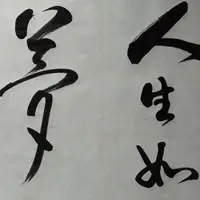 人生如
梦